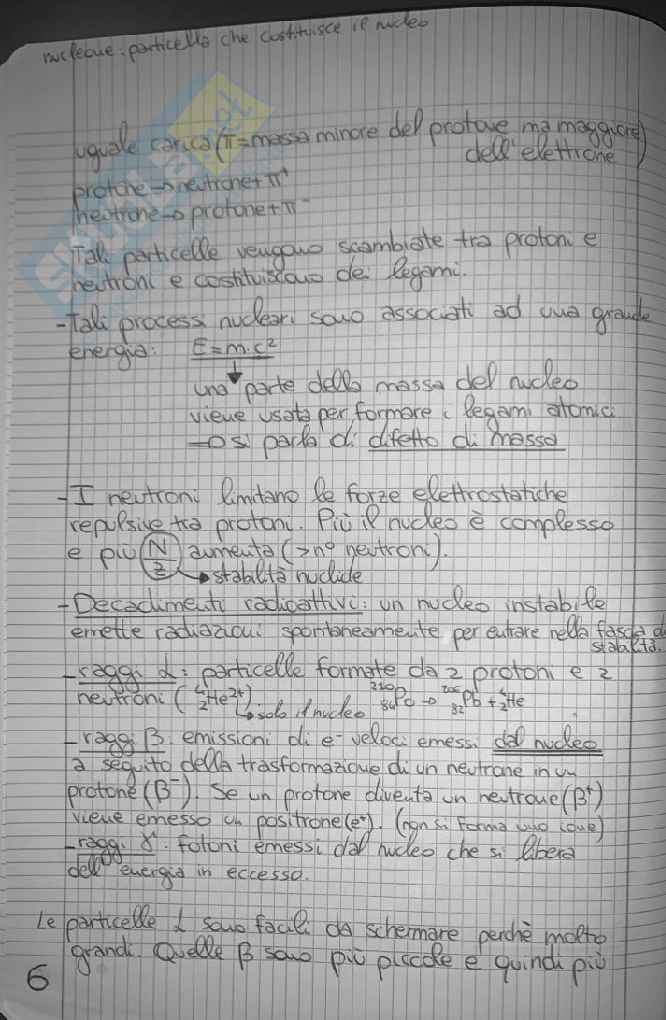 nucleone: particella che costituisce il nucleo
uguale carica (π = massa minore del protone ma maggiore
dell'elettrone)
protone → neutrone + π⁺
neutrone → protone + π⁻
Tali particelle vengono scambiate tra protoni e
neutroni e costituiscono dei legami.
- Tali processi nucleari sono associati ad una grande
energia: E = m·c²
una parte della massa del nucleo
viene usata per formare i legami atomici
→ si parla di difetto di massa
- I neutroni limitano le forze elettrostatiche
repulsive tra protoni. Più il nucleo è complesso
e più N/Z aumenta (> n° neutroni).
→ stabilità nuclide
- Decadimenti radioattivi: un nucleo instabile
emette radiazioni spontaneamente per entrare nella fascia di
stabilità.
- raggi α: particelle formate da 2 protoni e 2
neutroni (⁴₂He²⁺) ²¹⁰₈₄Po → ²⁰⁶₈₂Pb + ⁴₂He
→ solo il nucleo
- raggi β: emissioni di e⁻ veloci emessi dal nucleo
a seguito della trasformazione di un neutrone in un
protone (β⁻). Se un protone diventa un neutrone (β⁺)
viene emesso un positrone (e⁺). (non si forma uno ione)
- raggi γ: fotoni emessi dal nucleo che si libera
dell'energia in eccesso.
Le particelle α sono facili da schermare perchè molto
grandi. Quelle β sono più piccole e quindi più
6